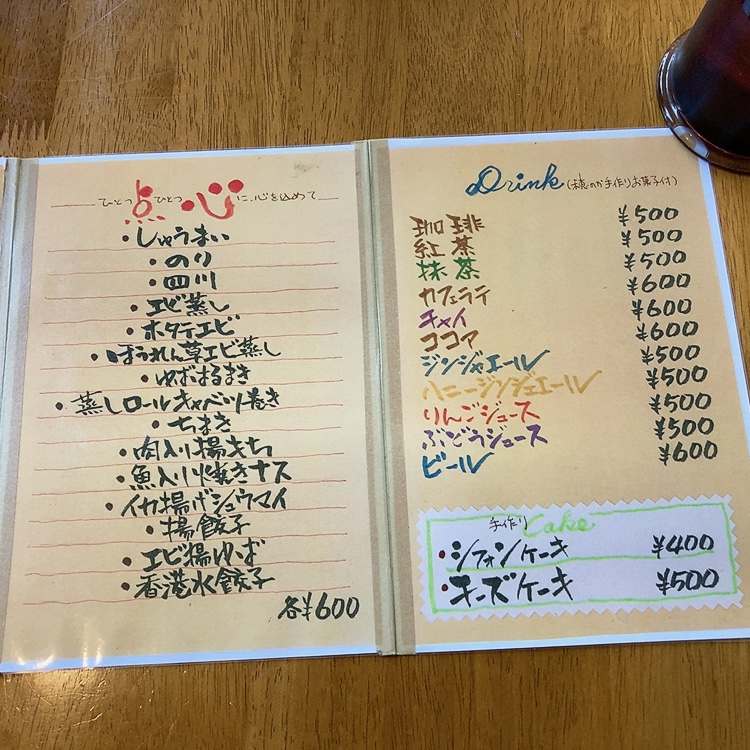 ひとつひとつ 点心 に、心を込めて
・しゅうまい
・のり
・四川
・エビ蒸し
・ホタテエビ
・ほうれん草エビ蒸し
・ゆずはるまき
・蒸しロールキャベツ巻き
・ちまき
・肉入り揚もち
・魚入り焼きナス
・イカ揚げシュウマイ
・揚餃子
・エビ揚ゆず
・香港水餃子
各¥600
Drink (のか手作りお菓子付)
珈琲 ¥500
紅茶 ¥500
抹茶 ¥500
カフェラテ ¥600
チャイ ¥600
ココア ¥600
ジンジャエール ¥500
ハニージンジェエール ¥500
りんごジュース ¥500
ぶどうジュース ¥500
ビール ¥600
手作り Cake
・シフォンケーキ ¥400
・チーズケーキ ¥500